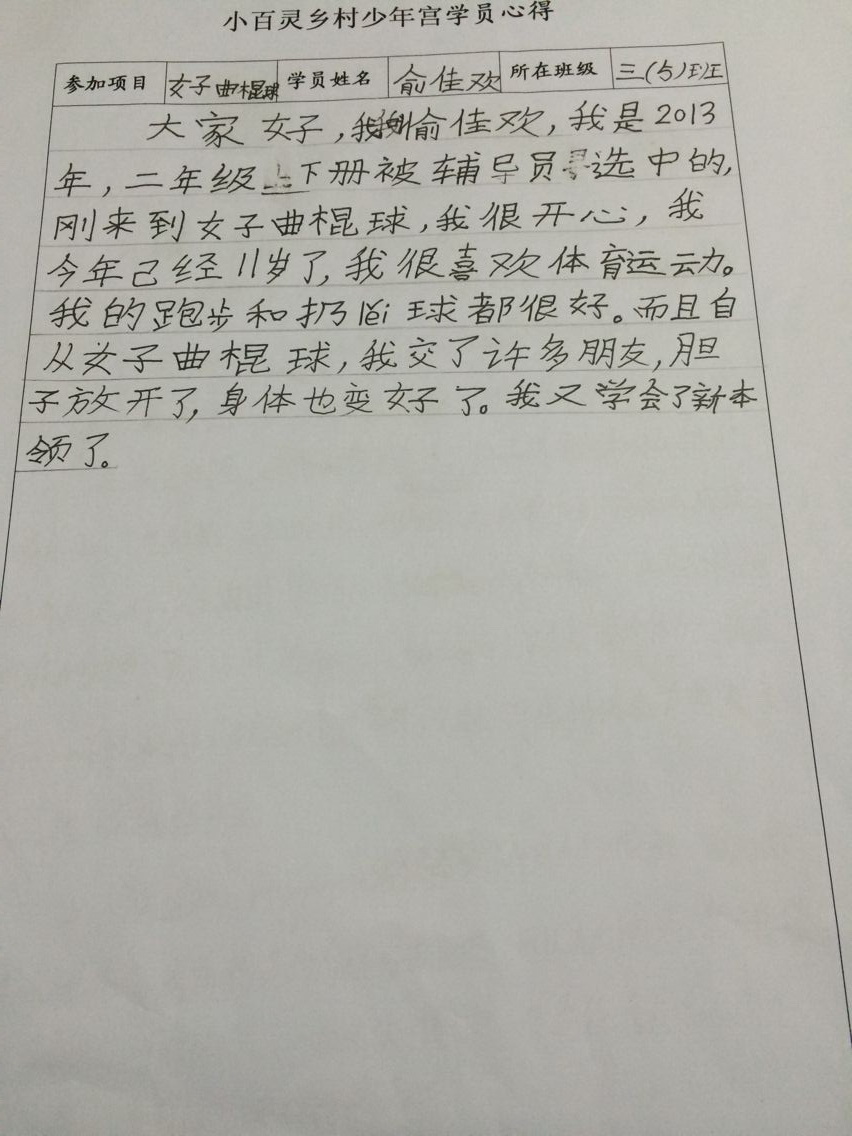 小百灵乡村少年宫学员心得
参加项目 女子曲棍球 学员姓名 俞佳欢 所在班级 三(5)班
大家好,我叫俞佳欢,我是2013
年,二年级下册被辅导员选中的,
刚来到女子曲棍球,我很开心,我
今年已经11岁了,我很喜欢体育运动。
我的跑步和扔lěi球都很好。而且自
从女子曲棍球,我交了许多朋友,胆
子放开了,身体也变好了。我又学会了新本
领了。